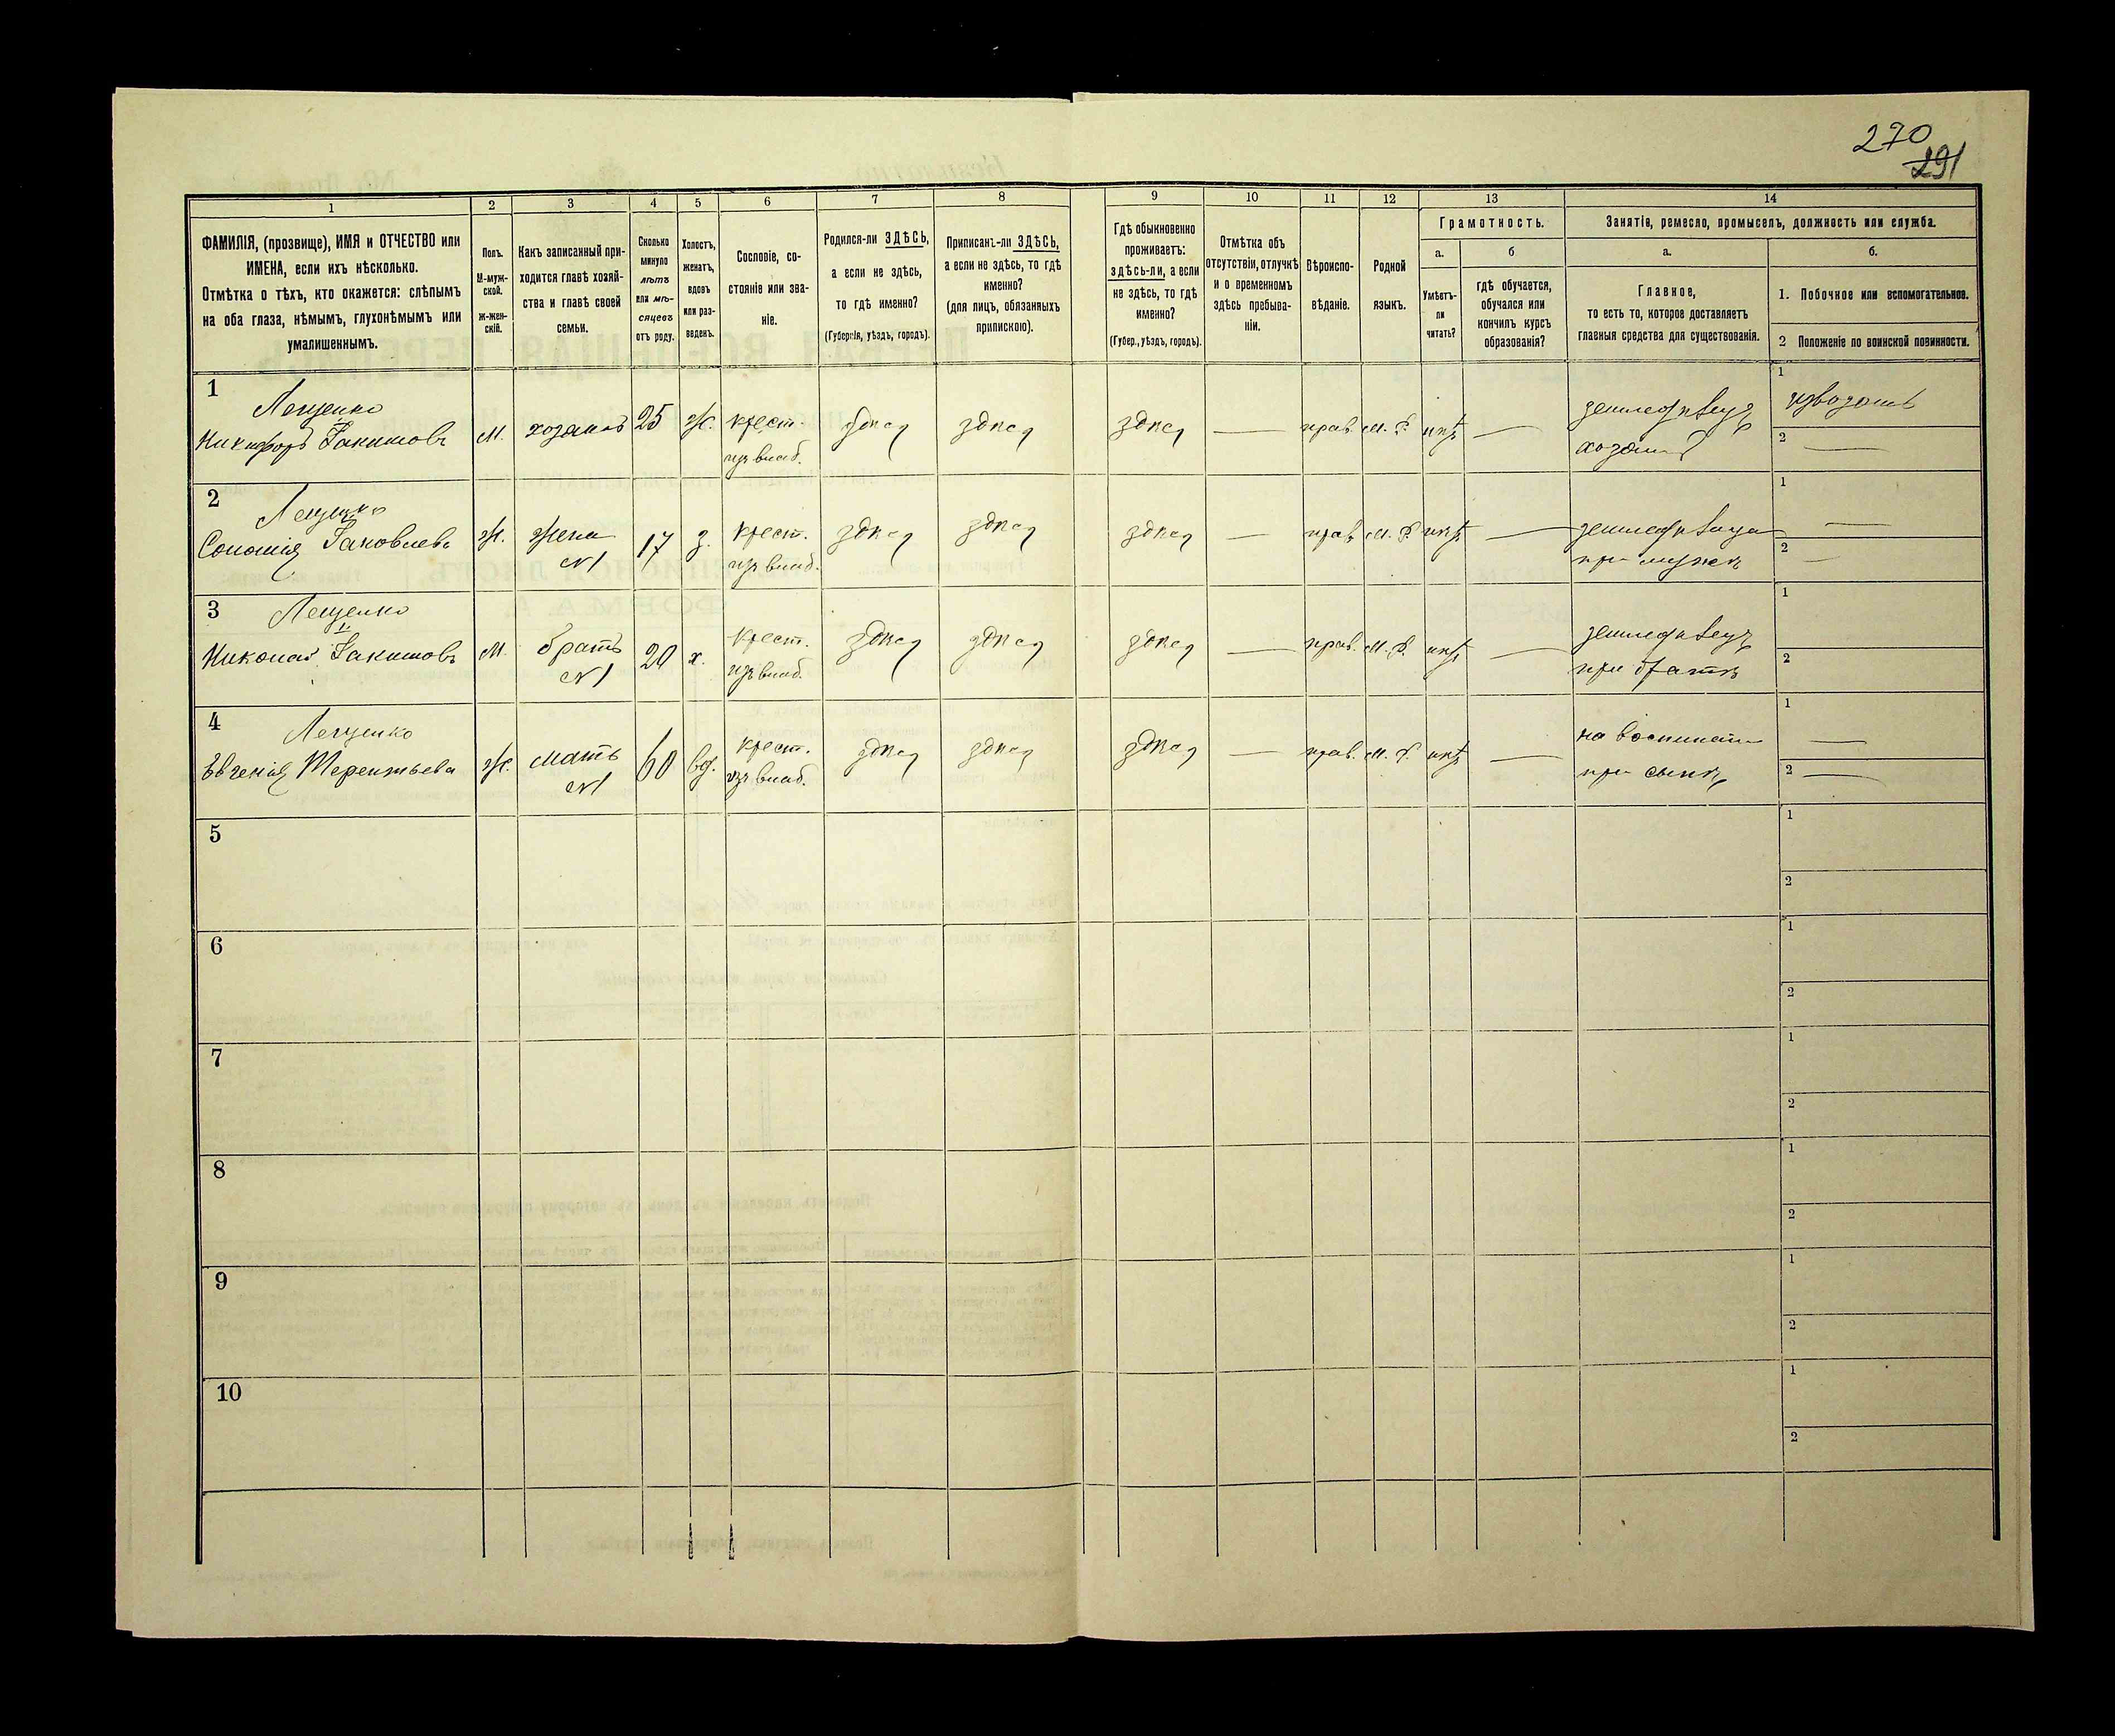 270
291
1
2
3
4
5
6
7
8
9
10
11
12
13
14
ФАМИЛІЯ, (прозвище), ИМЯ и ОТЧЕСТВО или
ИМЕНА, если ихъ нѣсколько.
Отмѣтка о тѣхъ, кто окажется: слѣпымъ
на оба глаза, нѣмымъ, глухонѣмымъ или
умалишеннымъ.
Полъ.
М-муж-
ской.
ж-жен-
скій.
Какъ записанный при-
ходится главѣ хозяй-
ства и главѣ своей
семьи.
Сколько
минуло
лѣтъ
или мѣ-
сяцевъ
отъ роду.
Холостъ,
женатъ,
вдовъ
или раз-
веденъ.
Сословіе, со-
стояніе или зва-
ніе.
Родился-ли ЗДѢСЬ,
а если не здѣсь,
то гдѣ именно?
(Губернія, уѣздъ, городъ).
Приписанъ-ли ЗДѢСЬ,
а если не здѣсь, то гдѣ
именно?
(для лицъ, обязанныхъ
припискою).
Гдѣ обыкновенно
проживаетъ:
здѣсь-ли, а если
не здѣсь, то гдѣ
именно?
(Губер., уѣздъ, городъ).
Отмѣтка объ
отсутствіи, отлучкѣ
и о временномъ
здѣсь пребыва-
ніи.
Вѣроиспо-
вѣданіе.
Родной
языкъ.
Грамотность.
а.
б
Умѣетъ-
ли
читать?
гдѣ обучается,
обучался или
кончилъ курсъ
образованія?
Занятія, ремесло, промыселъ, должность или служба.
а.
б.
Главное,
то есть то, которое доставляетъ
главныя средства для существованія.
1. Побочное или вспомогательное.
2 Положеніе по воинской повинности.
1
Лещенко
Никифоръ Іакимовъ
м.
хозяинъ
25
ж.
крест.
изъ влад.
здѣсь
здѣсь
здѣсь
—
прав.
М. Р.
нѣтъ
—
земледѣлецъ
хозяинъ
1
извозомъ
2
—
2
Лещенко
Соломія Іаковлева
ж.
жена
№1
17
з.
крест.
изъ влад.
здѣсь
здѣсь
здѣсь
—
прав.
М. Р.
нѣтъ
—
при мужѣ
1
—
2
—
3
Лещенко
Николай Іакимовъ
м.
братъ
№1
20
х.
крест.
изъ влад.
здѣсь
здѣсь
здѣсь
—
прав.
М. Р.
нѣтъ
—
земледѣлецъ
при братѣ
1
2
4
Лещенко
Евгенія Терентьева
ж.
мать
№1
60
вд.
крест.
изъ влад.
здѣсь
здѣсь
здѣсь
—
прав.
М. Р.
нѣтъ
—
на
при сынѣ
1
—
2
—
5
1
2
6
1
2
7
1
2
8
1
2
9
1
2
10
1
2